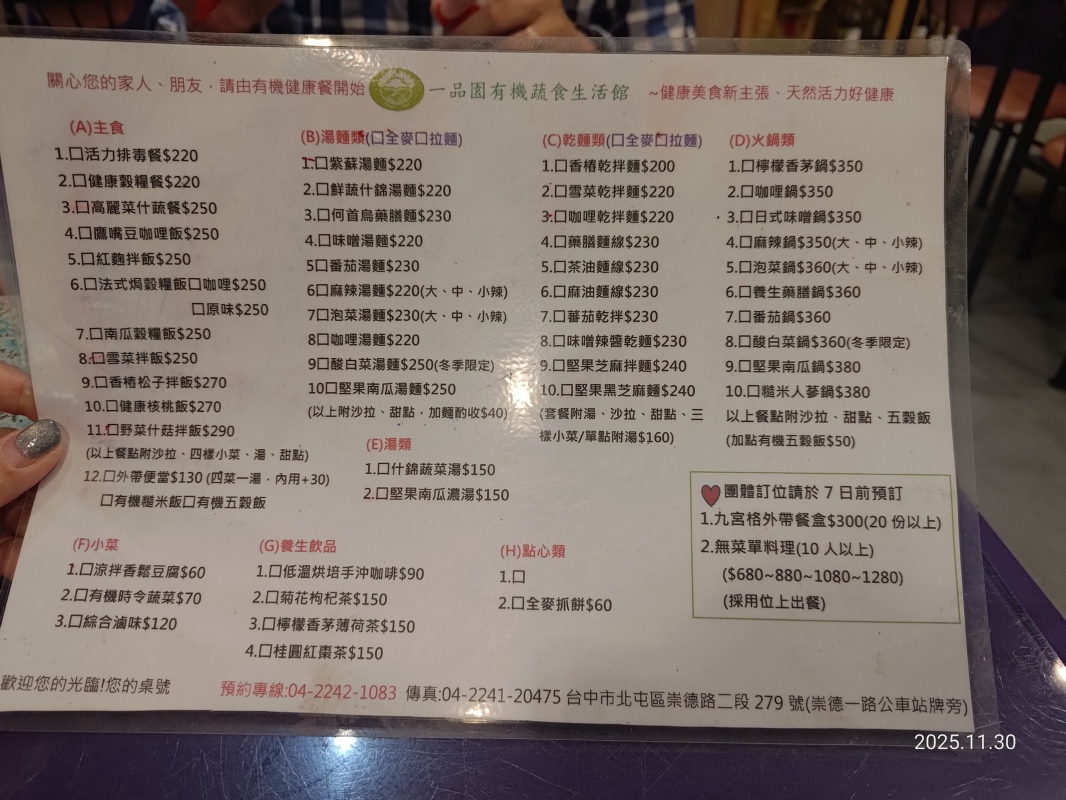 關心您的家人、朋友，請由有機健康餐開始 一品園有機蔬食生活館 ~健康美食新主張、天然活力好健康
(A)主食
1.口活力排毒餐$220
2.口健康穀糧餐$220
3.口高麗菜什蔬餐$250
4.口鷹嘴豆咖哩飯$250
5.口紅麴拌飯$250
6.口法式焗穀糧飯口咖哩$250
口原味$250
7.口南瓜穀糧飯$250
8.口雪菜拌飯$250
9.口香椿松子拌飯$270
10.口健康核桃飯$270
11.口野菜什菇拌飯$290
(以上餐點附沙拉、四樣小菜、湯、甜點)
12.口外帶便當$130 (四菜一湯，內用+30)
口有機糙米飯口有機五穀飯
(B)湯麵類(口全麥口拉麵)
1.口紫蘇湯麵$220
2.口鮮蔬什錦湯麵$220
3.口何首烏藥膳麵$230
4.口味噌湯麵$220
5口番茄湯麵$230
6口麻辣湯麵$220(大、中、小辣)
7口泡菜湯麵$230(大、中、小辣)
8口咖哩湯麵$220
9口酸白菜湯麵$250(冬季限定)
10口堅果南瓜湯麵$250
(以上附沙拉、甜點，加麵酌收$40)
(E)湯類
1.口什錦蔬菜湯$150
2.口堅果南瓜濃湯$150
(C)乾麵類(口全麥口拉麵)
1.口香椿乾拌麵$200
2.口雪菜乾拌麵$220
3.口咖哩乾拌麵$220
4.口藥膳麵線$230
5.口茶油麵線$230
6.口麻油麵線$230
7.口蕃茄乾拌$230
8.口味噌辣醬乾麵$230
9.口堅果芝麻拌麵$240
10.口堅果黑芝麻麵$240
(套餐附湯、沙拉、甜點、三
樣小菜/單點附湯$160)
(D)火鍋類
1.口檸檬香茅鍋$350
2.口咖哩鍋$350
3.口日式味噌鍋$350
4.口麻辣鍋$350(大、中、小辣)
5.口泡菜鍋$360(大、中、小辣)
6.口養生藥膳鍋$360
7.口番茄鍋$360
8.口酸白菜鍋$360(冬季限定)
9.口堅果南瓜鍋$380
10.口糙米人蔘鍋$380
以上餐點附沙拉、甜點、五穀飯
(加點有機五穀飯$50)
團體訂位請於 7 日前預訂
1.九宮格外帶餐盒$300(20 份以上)
2.無菜單料理(10 人以上)
($680~880~1080~1280)
(採用位上出餐)
(F)小菜
1.口涼拌香鬆豆腐$60
2.口有機時令蔬菜$70
3.口綜合滷味$120
(G)養生飲品
1.口低溫烘培手沖咖啡$90
2.口菊花枸杞茶$150
3.口檸檬香茅薄荷茶$150
4.口桂圓紅棗茶$150
(H)點心類
1.口
2.口全麥抓餅$60
歡迎您的光臨!您的桌號 預約專線:04-2242-1083 傳真:04-2241-20475 台中市北屯區崇德路二段 279 號(崇德一路公車站牌旁)
2025.11.30